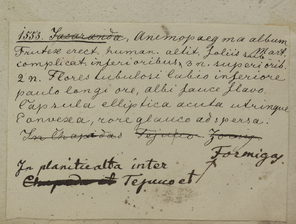 1333. Jacaranda, Anemopaegma album
Mart.
Frutex erect. human. altit. foliis sub
complicat. inferioribus, 3 n. superiorib.
2 n. Flores tubulosi labio inferiore
paulo longiore, albi fauce flavo.
Capsula elliptica acuta utrinque
convexa, rore glauco adspersa.
In Chapadas Tejuco
Formigas
In planitie alta inter
Chapada et Tejuco et